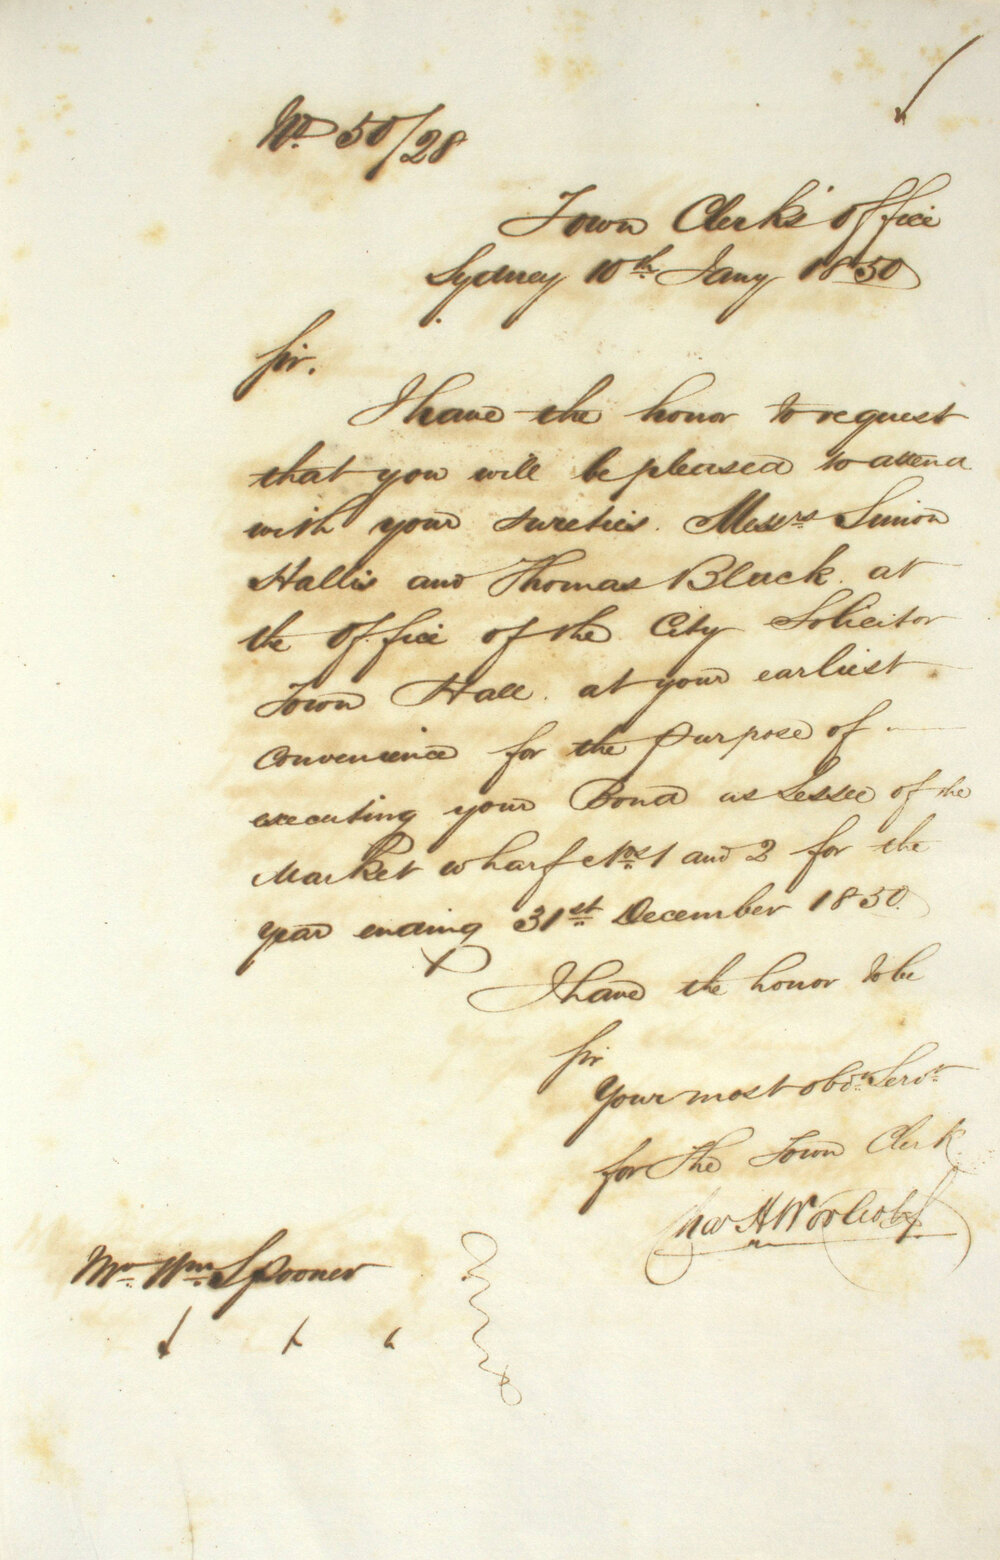 No. 50/28
Town Clerk's Office
Sydney 10th Jany 1850
Sir.
I have the honor to request
that you will be pleased to attend
with your sureties. Messrs Simon
Hallis and Thomas Black. at
the Office of the City Solicitor
Town Hall. at your earliest
convenience for the purpose of
executing your Bond as Lessee of the
Market Wharf Nos 1 and 2 for the
year ending 31st December 1850.
I have the honor to be
Sir
Your most obdt. Servt.
for The Town Clerk
Chas H
Mr. Wm. Spooner